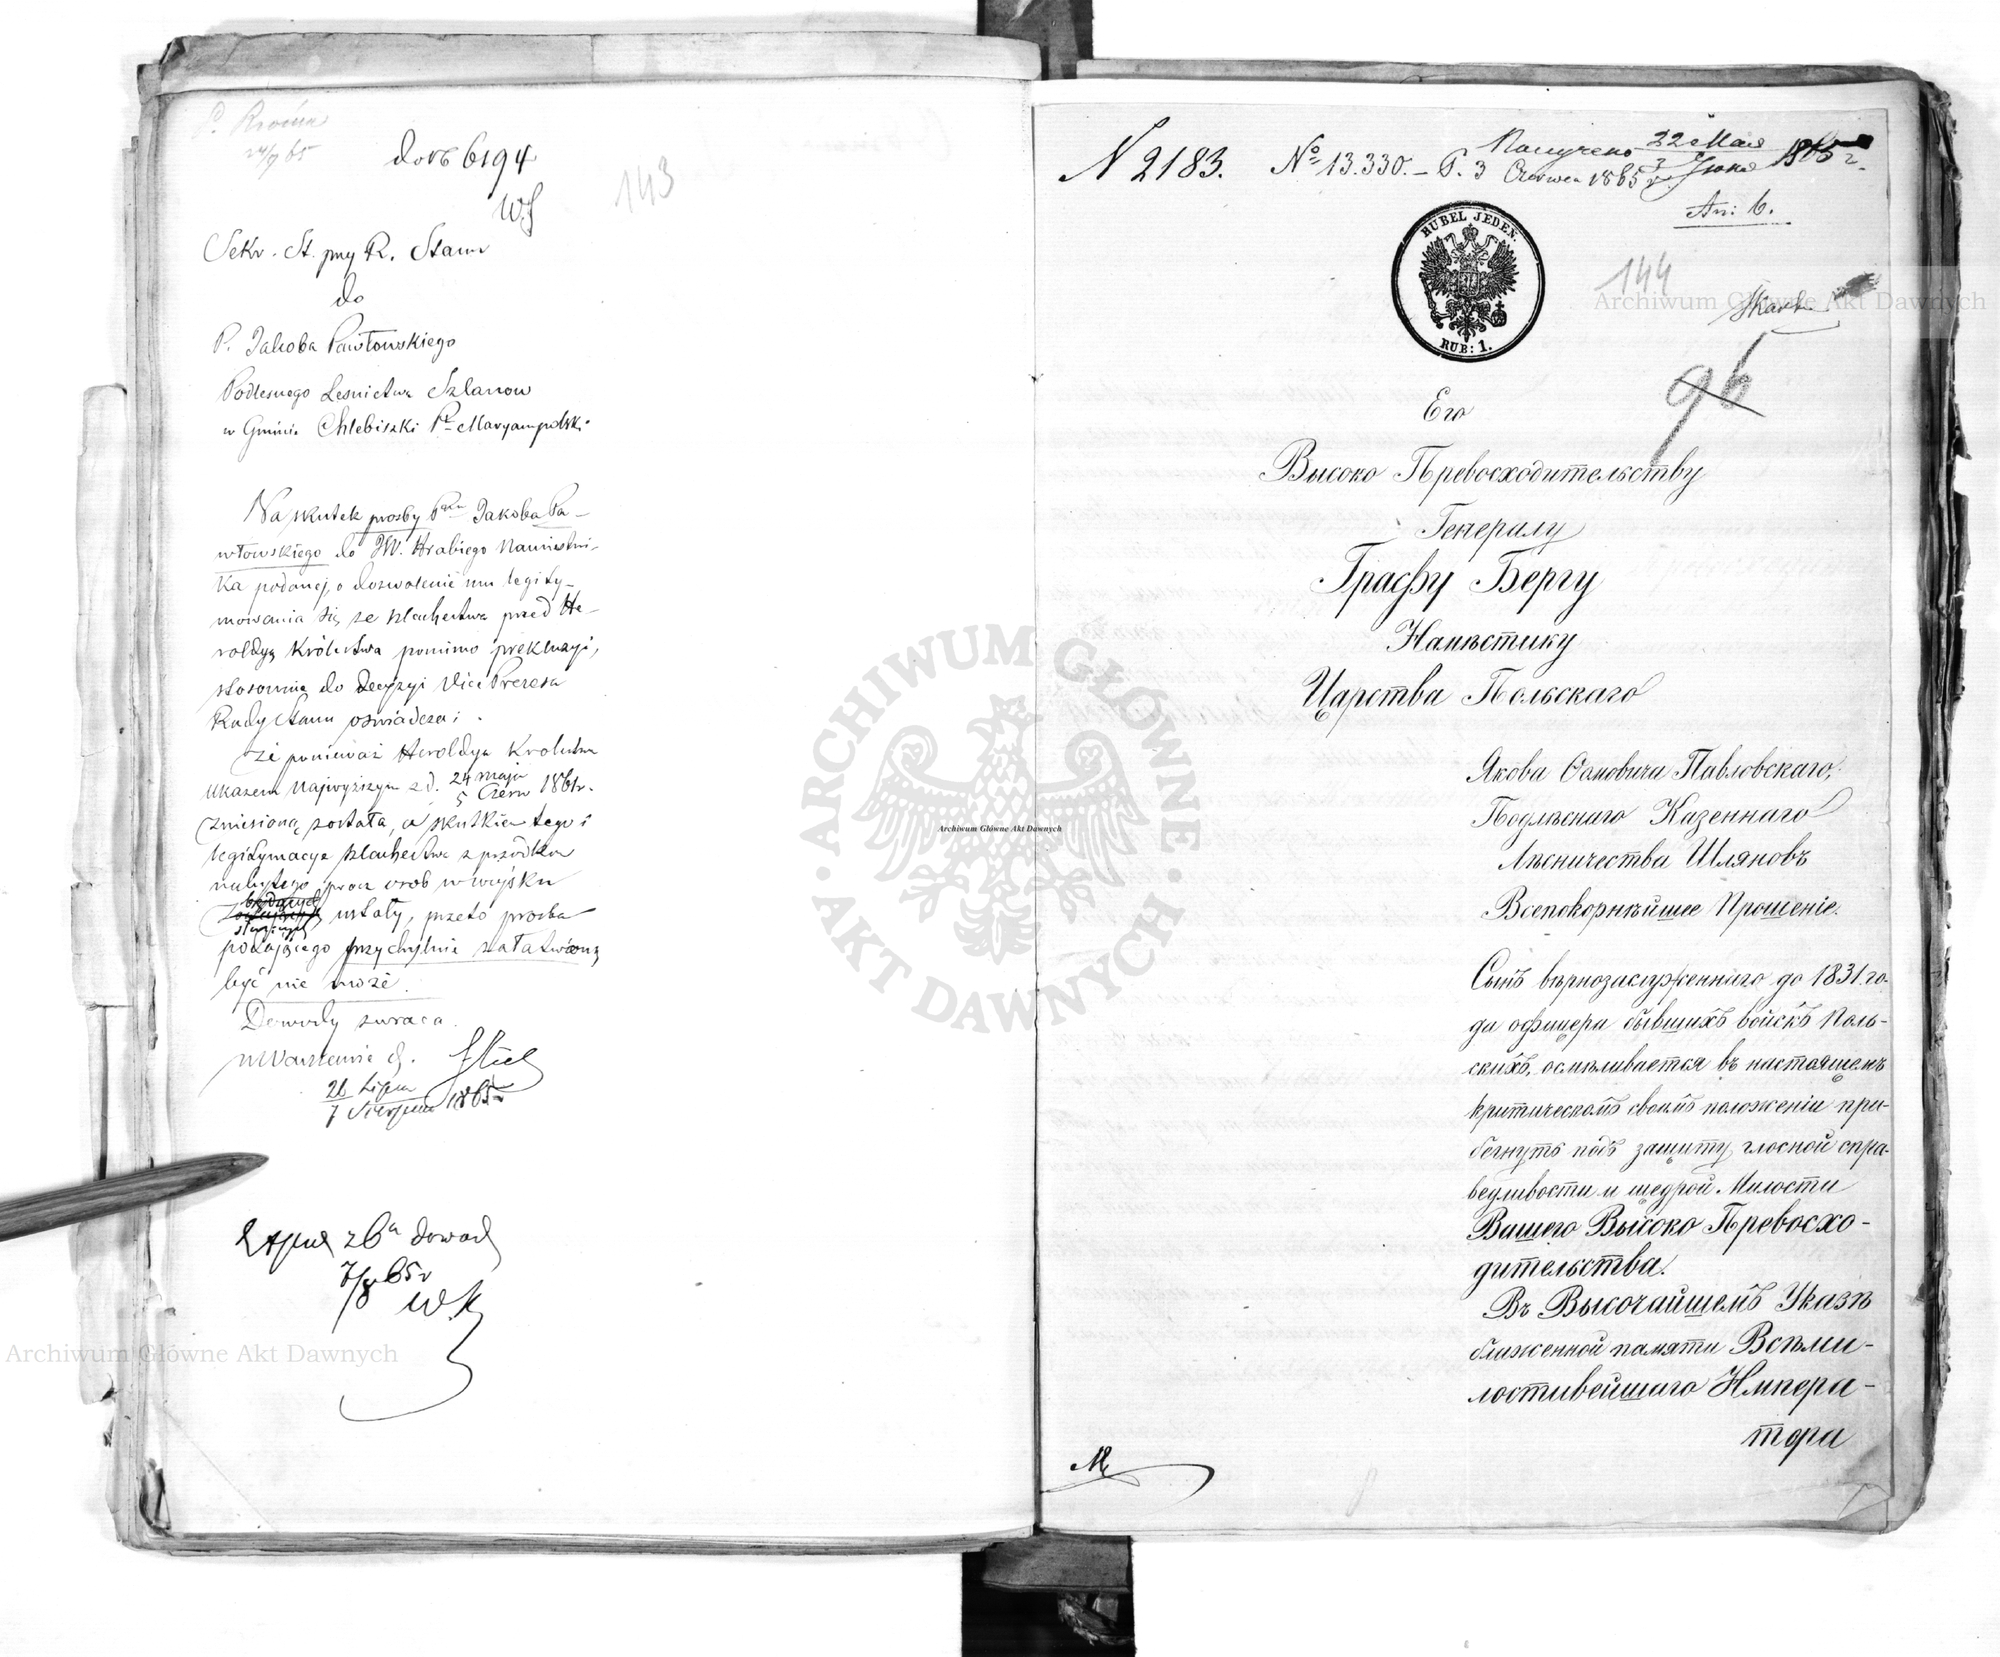 P. Krośna
24/7 65
do Nb 6194
WS
143
Sekr. St. przy R. Stanu
do
P. Jakóba Pawłowskiego
Podleśnego Leśnictwa Szlanow
w Gminie Chlebiszki Pt Maryampolski
Na skutek prośby Pana Jakóba Pa-
włowskiego do JW. Hrabiego Namiestni-
ka podanej, o dozwolenie mu legity-
mowania się ze szlachectwa przed He-
roldyą Królestwa pomimo prekluzyi,
stosownie do decyzyi Vice Prezesa
Rady Stanu oświadcza:
że ponieważ Heroldya Królestwa
ukazem Najwyższym z d. 24 maja
5 Czerw 1861 r.
zniesioną została, a skutkiem tego i
legitymacye szlachectwa z przodków
nabytego przez osób w wojsku
będących
służących
ustały, przeto prośba
podającego przychylnie załatwioną
być nie może.
Dowody zwraca.
w Warszawie d.
26 Lipca
7 Sierpnia 1865 r
z 6a dowod
7/8 65 r
W.K.
N 2183. № 13.330. – P. 3 Получено 22 Мая
3 Июня 1865 г.
Czerwca 1865 r.
An: 6.
144
Skarb.
96
RUBEL JEDEN.
RUB: 1.
Его
Высоко Превосходительству
Генералу
Графу Бергу
Намѣстнику
Царства Польскаго
Якова Осиповича Павловскаго,
Подлѣснаго Казеннаго
Лѣсничества Шляновъ
Всепокорнѣйшее Прошеніе.
Сынъ вѣрнозаслуженнаго до 1831 го-
да офицера бывшихъ войскъ Поль-
скихъ, осмѣливается въ настоящемъ
критическомъ своимъ положеніи при-
бегнуть подъ защиту гласной спра-
ведливости и щедрой Милости
Вашего Высоко Превосхо-
дительства.
Въ Высочайшемъ Указѣ
блаженной памяти Всѣми-
лостивейшаго Импера-
тора
Archiwum Główne Akt Dawnych
ARCHIWUM GŁÓWNE · AKT DAWNYCH ·
Archiwum Główne Akt Dawnych
Archiwum Główne Akt Dawnych